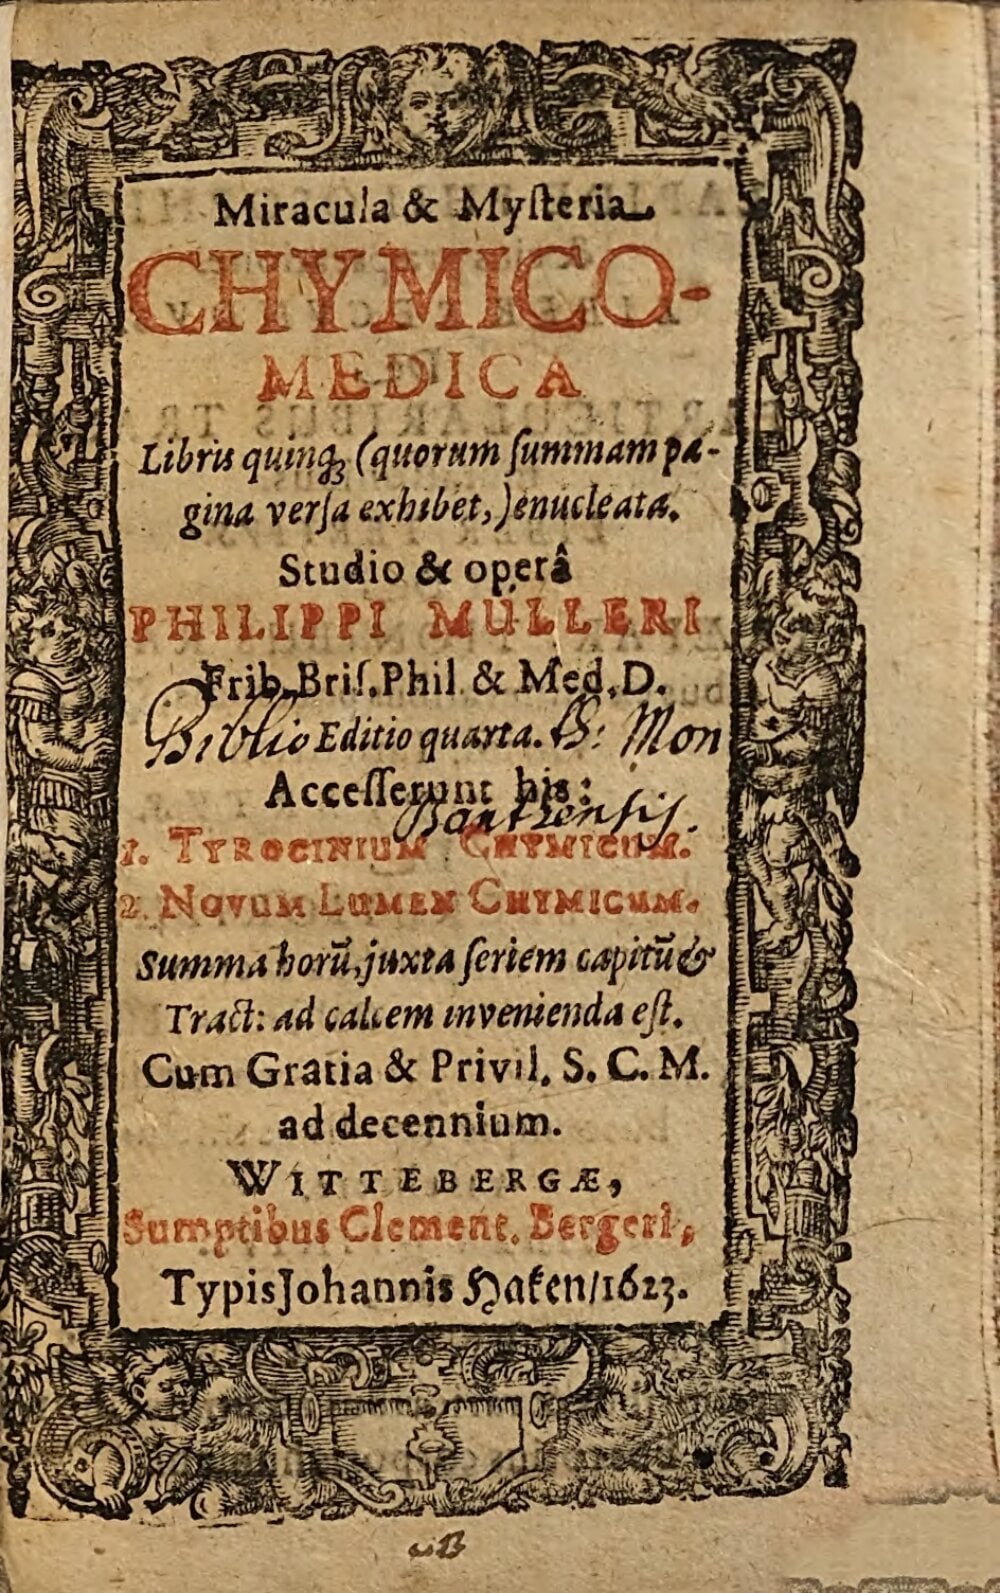 Miracula & Myſteria
CHYMICO-
MEDICA
Libris quinq́ꝫ (quorum ſummam pa-
gina verſa exhibet,) enucleata.
Studio & operâ
PHILIPPI MÜLLERI
Frib. Briſ. Phil. & Med. D.
Biblio Editio quarta. Mon
Acceſſerunt his:
1. TYROCINIUM CHYMICUM.
2. NOVUM LUMEN CHYMICUM.
Summa horū, juxta ſeriem capitū &
Tract: ad calcem invenienda eſt.
Cum Gratia & Privil. S. C. M.
ad decennium.
WITTEBERGÆ,
Sumptibus Clement. Bergeri,
Typis Johannis Haken/1623.